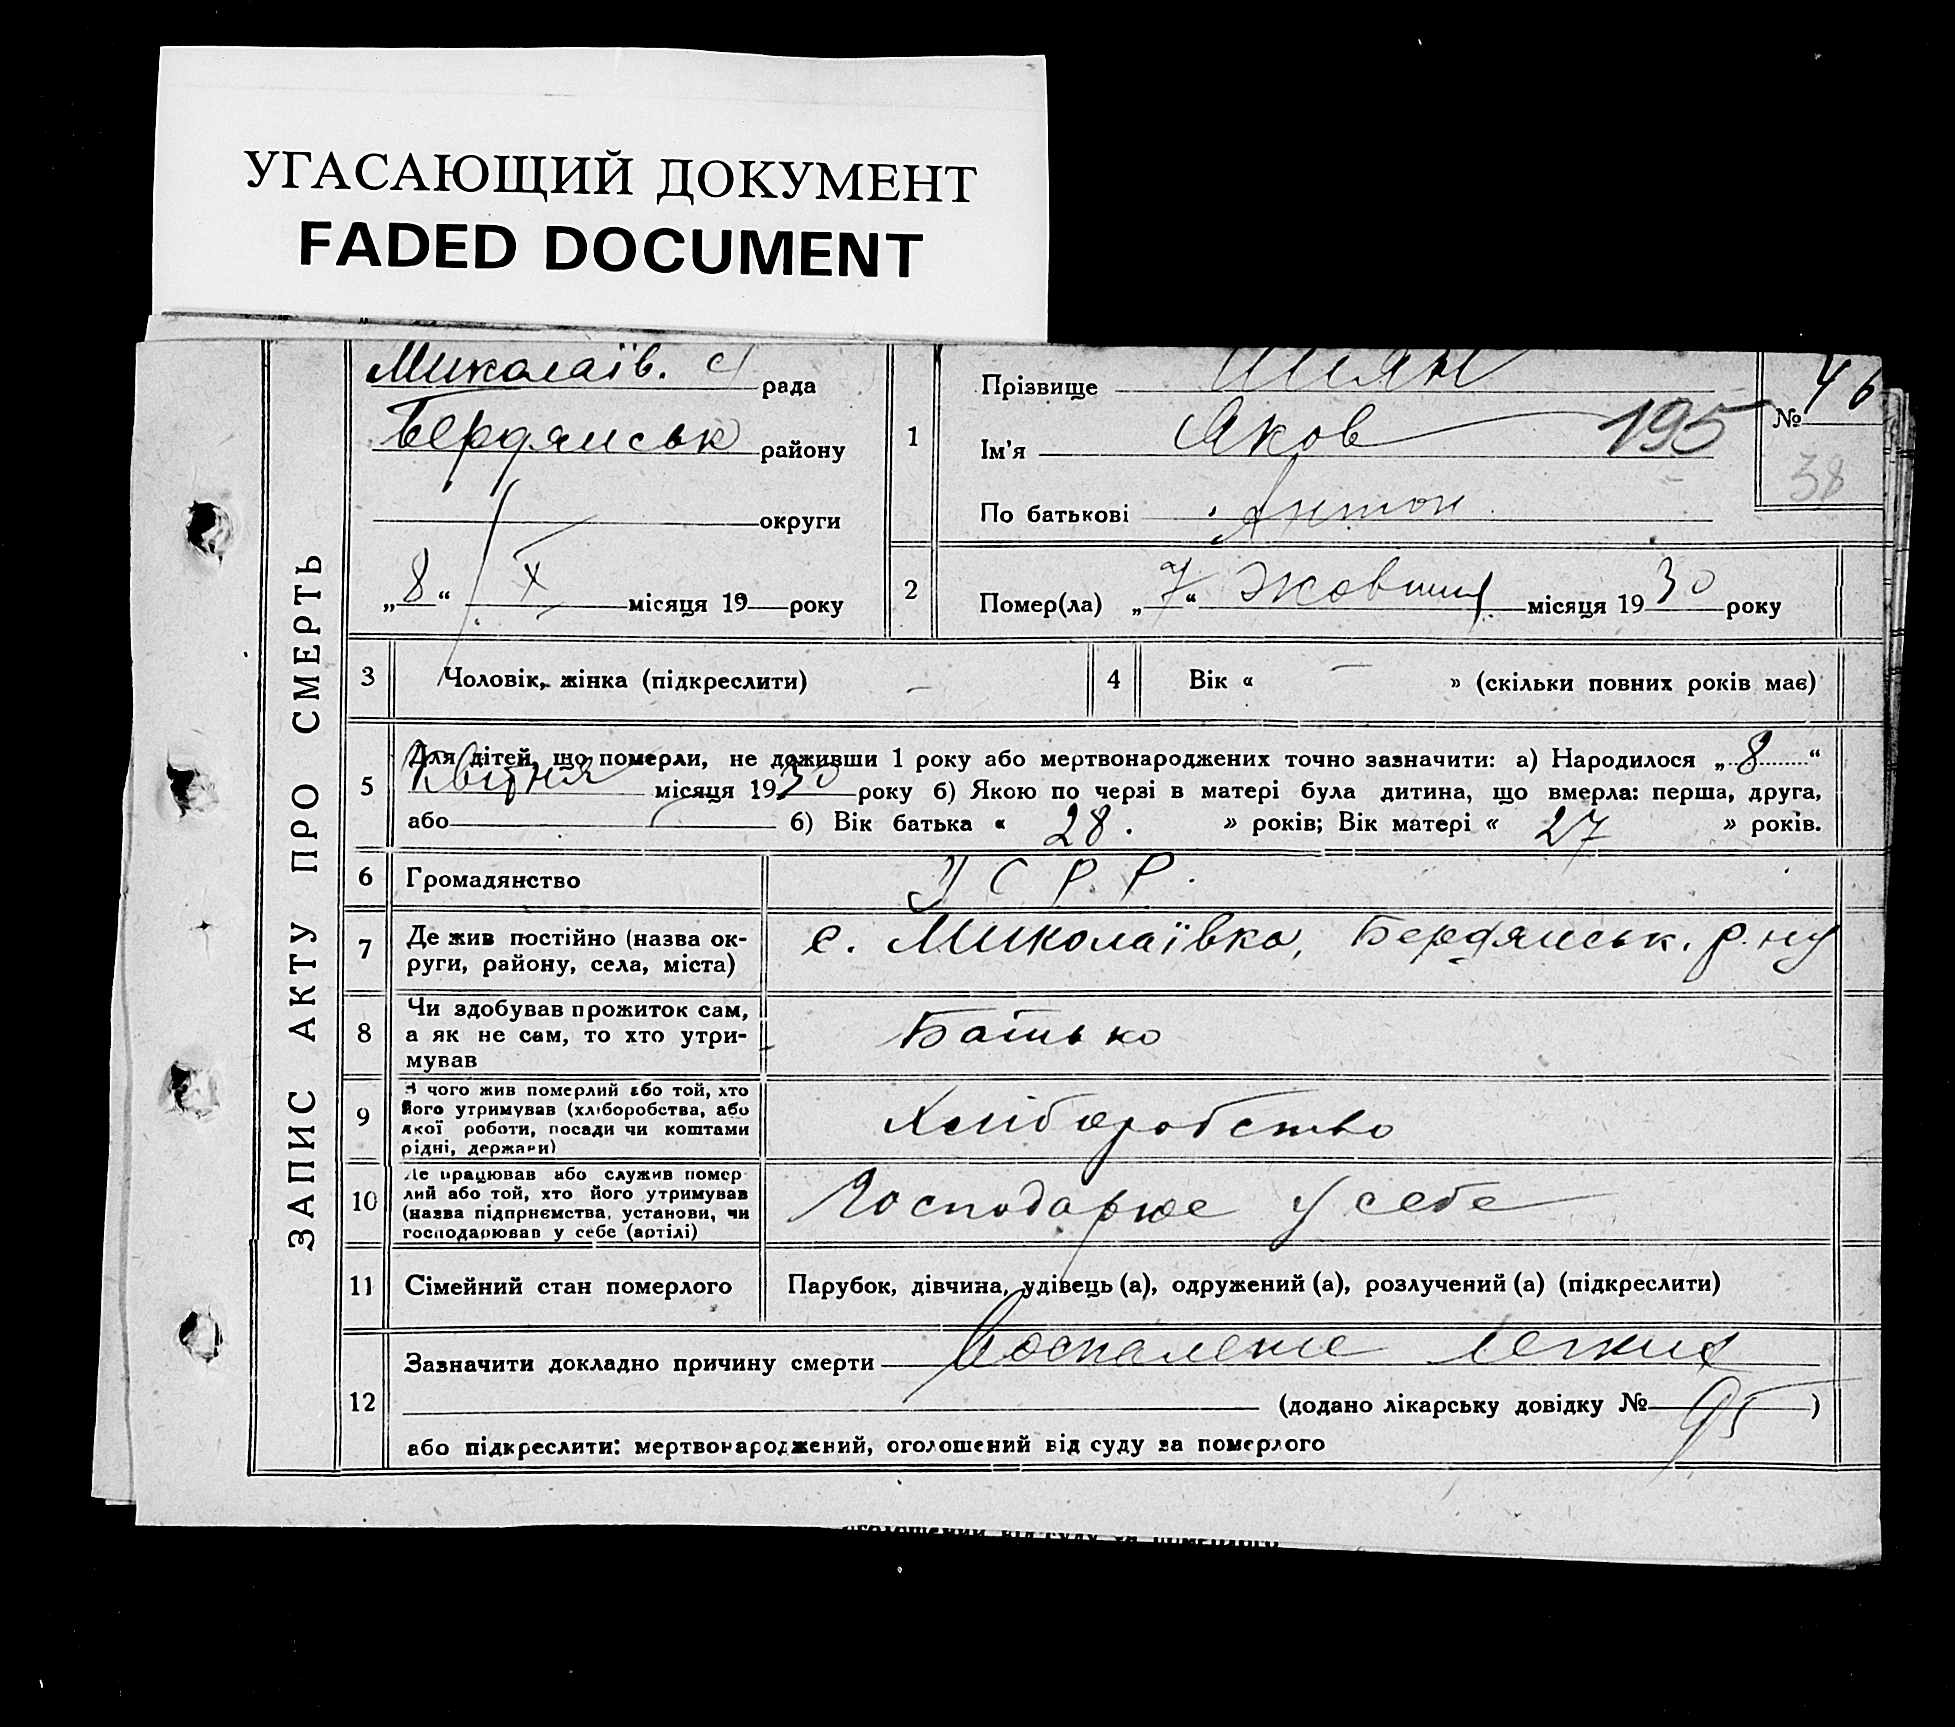 УГАСАЮЩИЙ ДОКУМЕНТ
FADED DOCUMENT
ЗАПИС АКТУ ПРО СМЕРТЬ
Миколаїв. с/ рада
Бердянськ району
округи
„8“ X місяця 19 року
1
Прізвище
Ім'я Яков 195
По батькові Антон
№ 46
38
2
Помер(ла) „7“ Жовтня місяця 1930 року
3 Чоловік, жінка (підкреслити) –
4 Вік « – » (скільки повних років має)
5 Для дітей, що померли, не доживши 1 року або мертвонароджених точно зазначити: а) Народилося „8“
Квітня місяця 1930 року б) Якою по черзі в матері була дитина, що вмерла: перша, друга,
або б) Вік батька « 28. » років; Вік матері « 27 » років.
6 Громадянство У С Р. Р.
7 Де жив постійно (назва ок-
руги, району, села, міста)
с. Миколаївка, Бердянськ. р-ну
8 Чи здобував прожиток сам,
а як не сам, то хто утри-
мував
Батько
9 З чого жив померлий або той, хто
його утримував (хліборобства, або
якої роботи, посади чи коштами
рідні, держави)
Хліборобство
10 Де працював або служив помер
лий або той, хто його утримував
(назва підприємства, установи, чи
господарював у себе (артілі)
Господарює у себе
11 Сімейний стан померлого Парубок, дівчина, удівець (а), одружений (а), розлучений (а) (підкреслити)
12 Зазначити докладно причину смерти Воспаление легких
(додано лікарську довідку № 95 )
або підкреслити: мертвонароджений, оголошений від суду за померлого
оголошений від суду за померлого